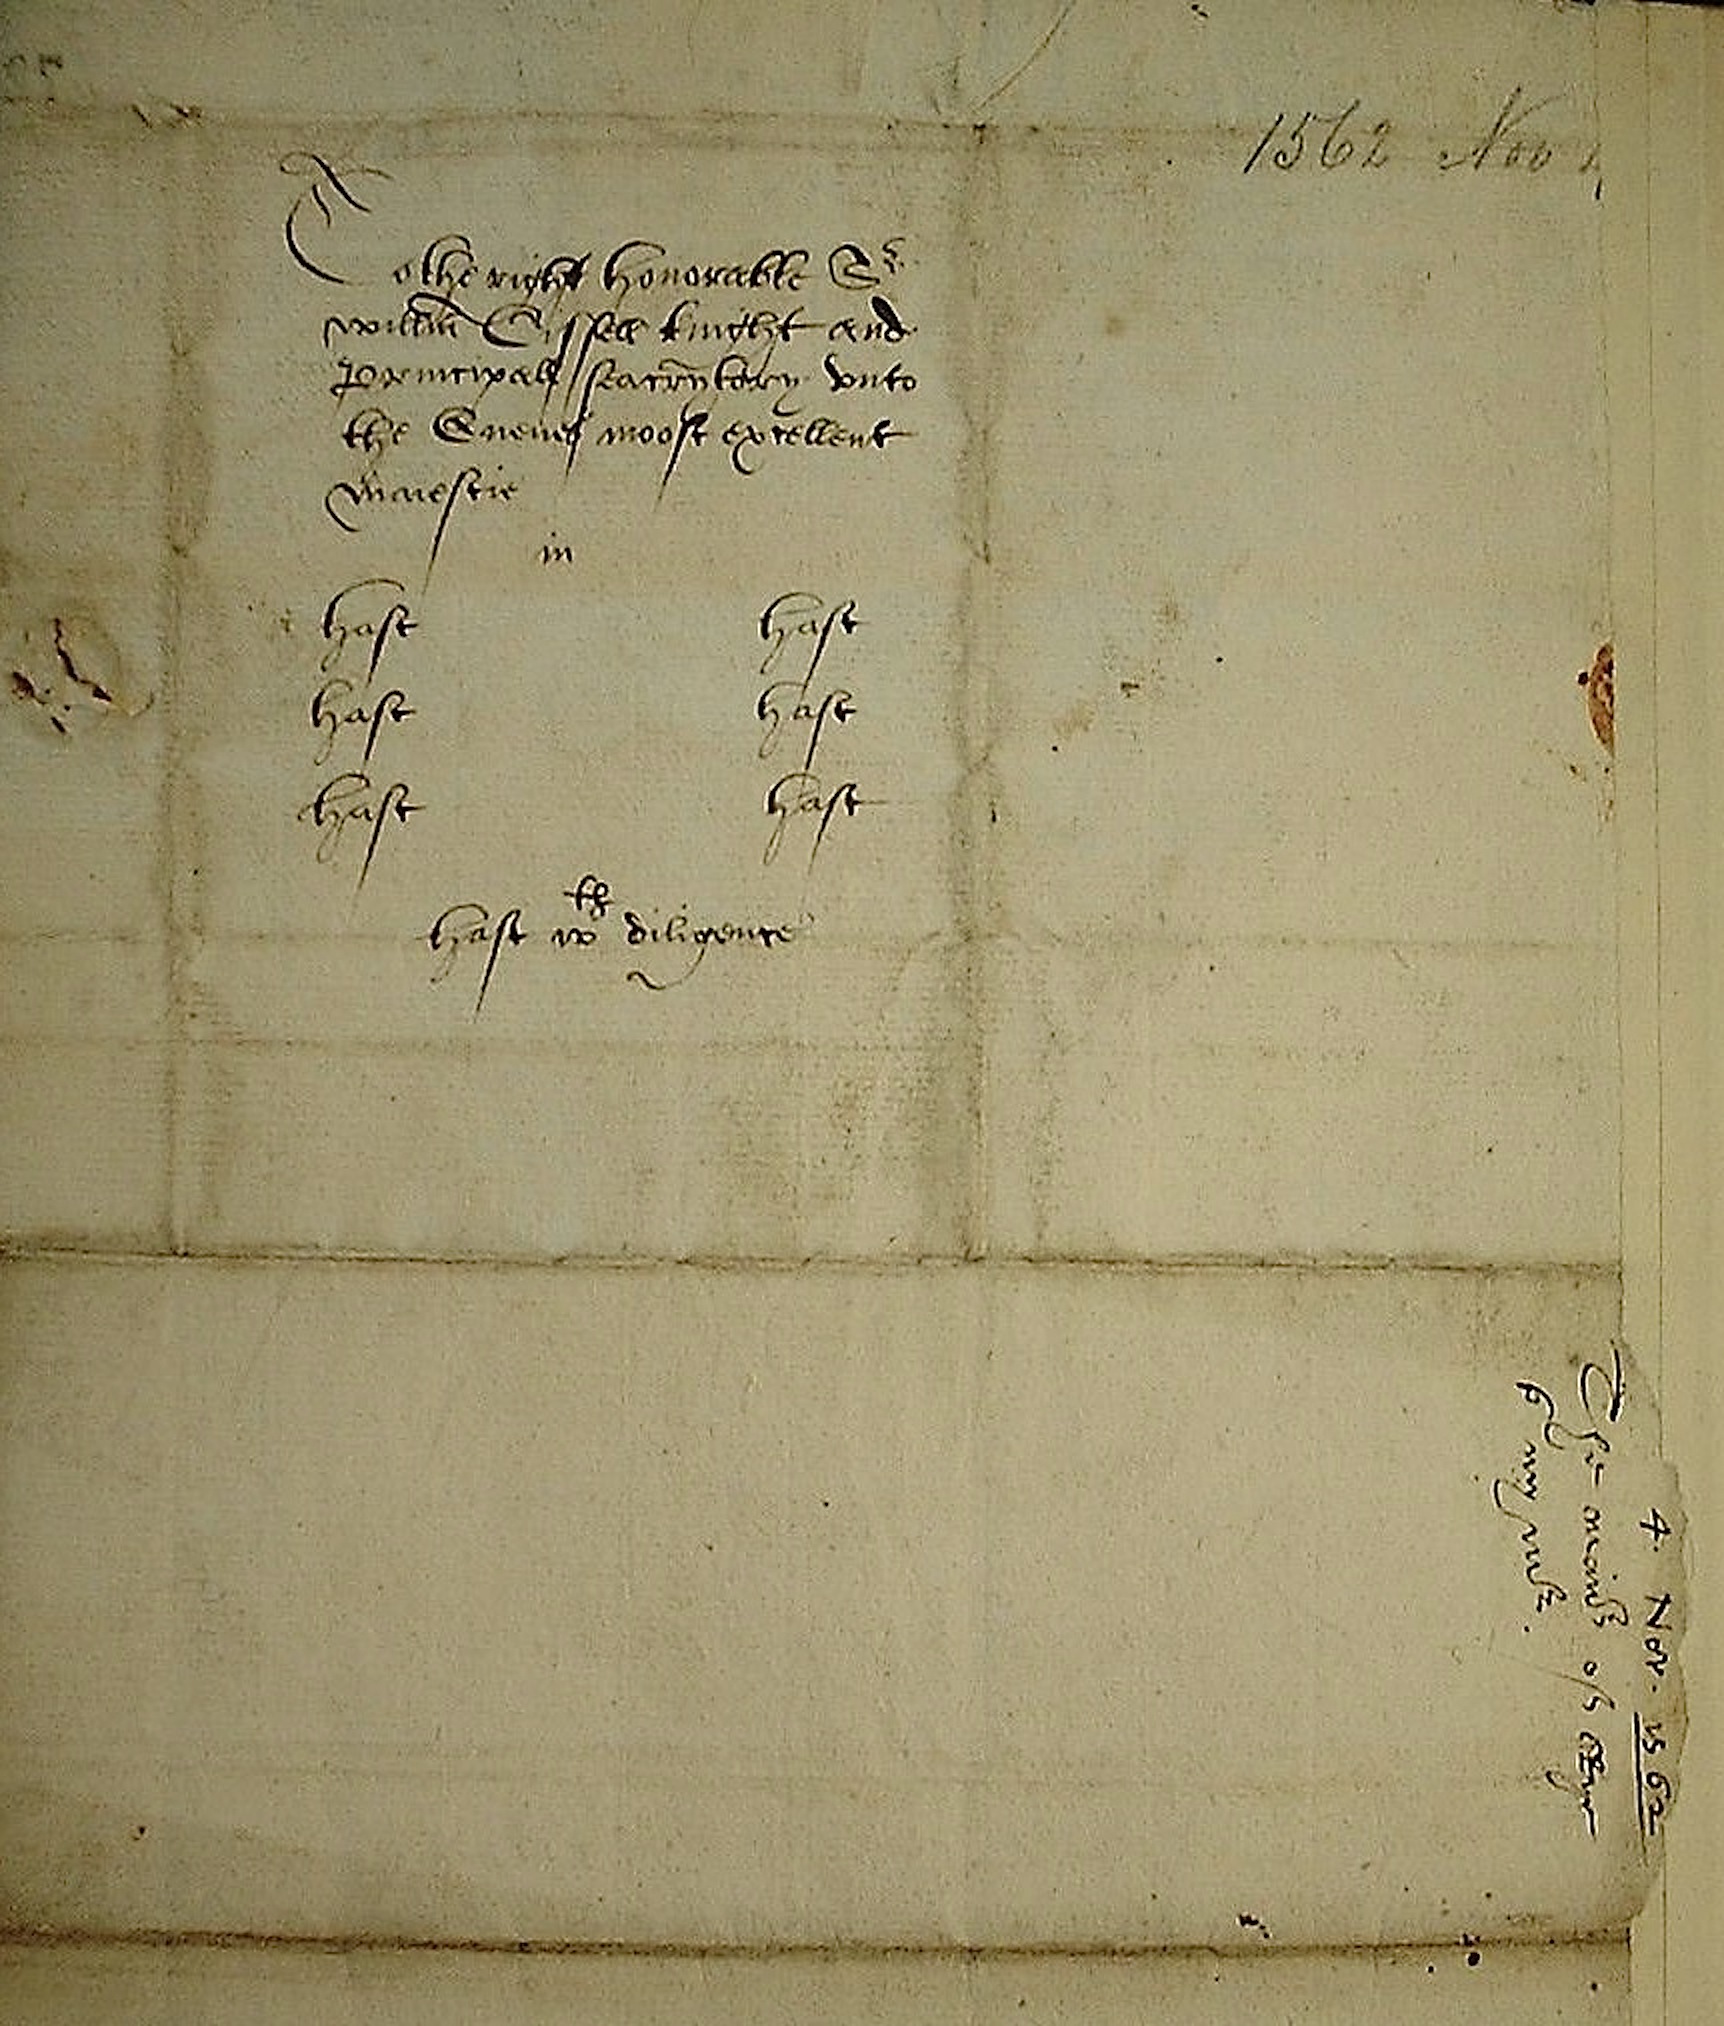 1562 Nov 4
To the right honorable Sr
willm Cissell knight and
Principall seacrytory vnto
the Quenes moost excellent
Maiestie
in
hast hast
hast hast
hast hast
hast wth diligence
4. Nov. 1562
The of
by my